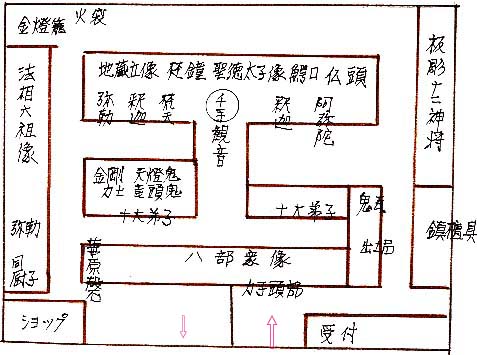 金燈籠 火袋
板彫十二神将
法相六祖像
地蔵立像 梵鐘 聖徳太子像 鰐口 仏頭
弥勒
釈迦
梵天
千手観音
釈迦
阿弥陀
金剛力士
天燈鬼
竜頭鬼
十大弟子
十大弟子
鬼瓦
出土品
鎮檀具
弥勒
厨子
華原磬
八部衆像
力子頭部
ショップ
受付